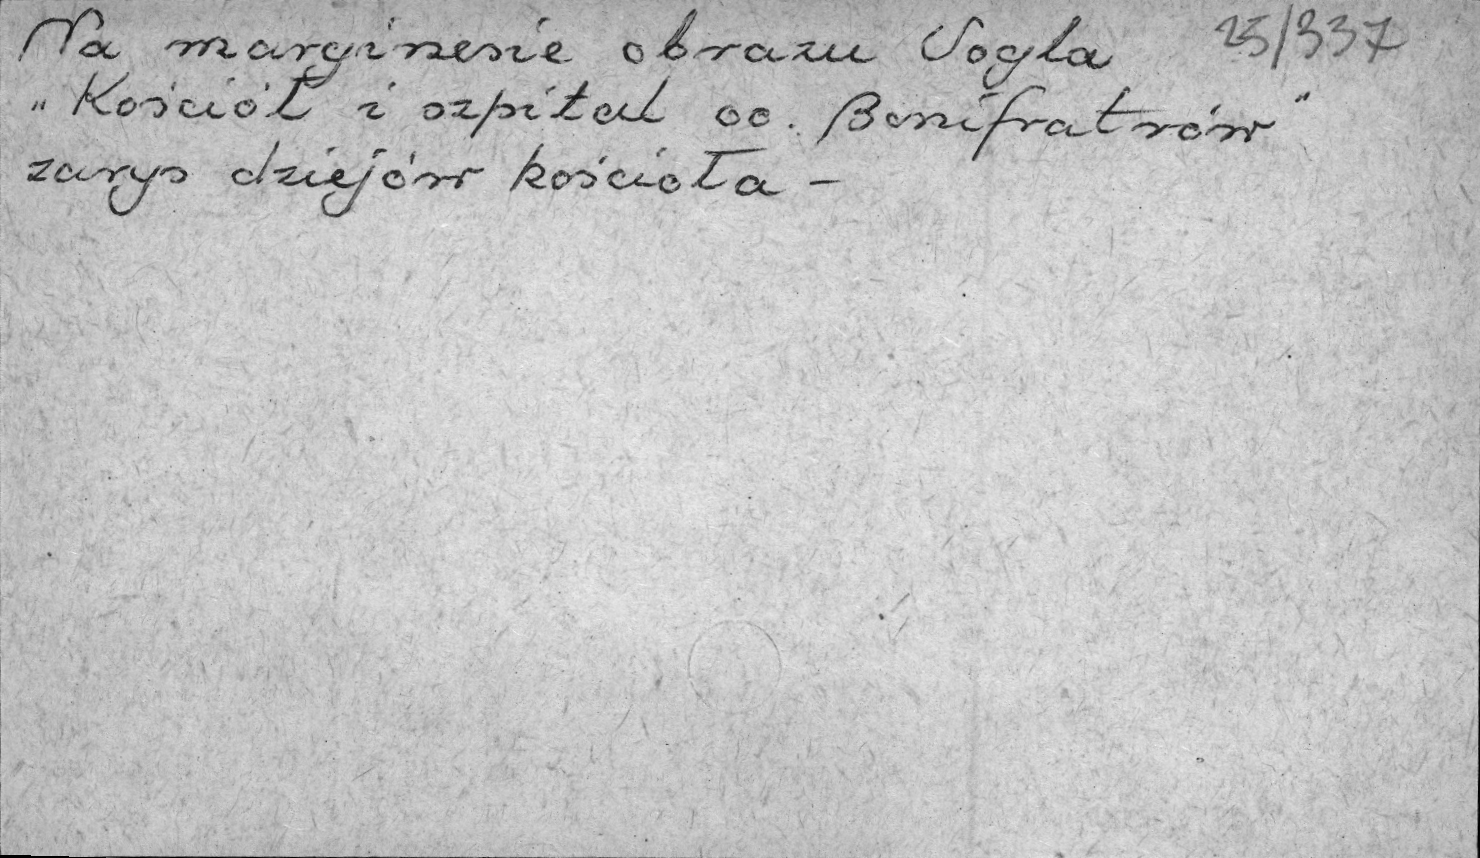 Na marginesie obrazu Vogla 25/337
„Kościół i szpital oo. Bonifratrów"
zarys dziejów kościoła -